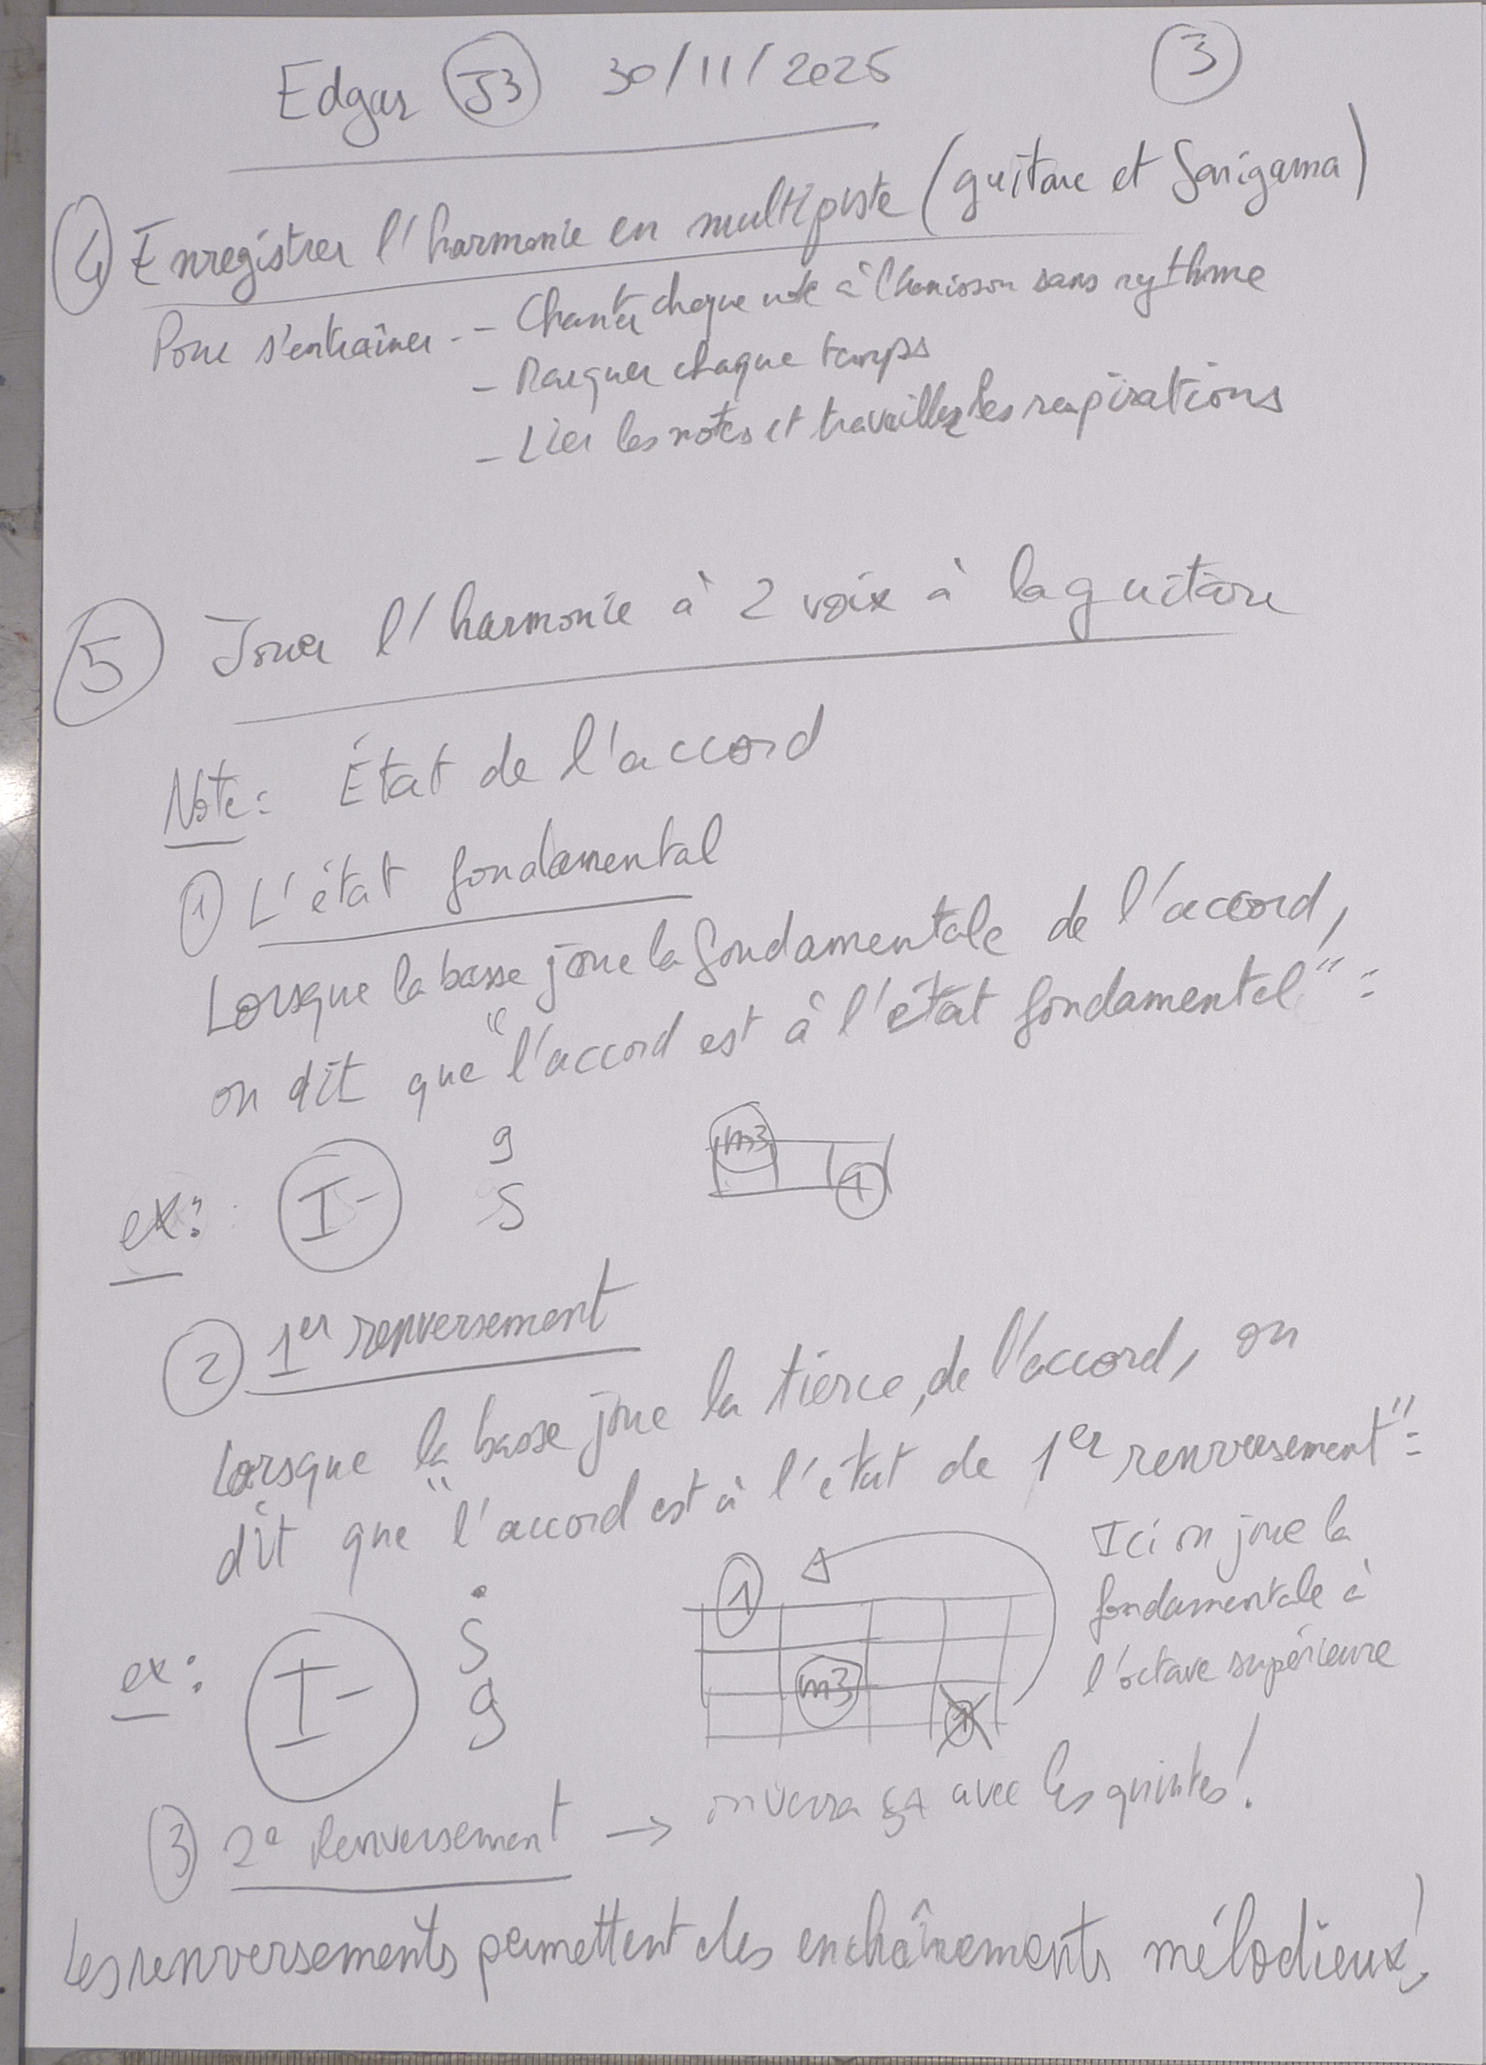 Edgar J3 30/11/2025 3
4 Enregistrer l'harmonie en multipiste (guitare et Sarigama)
Pour s'entraîner : - Chanter chaque note à l'unisson sans rythme
- Marquer chaque temps
- Lier les notes et travailler les respirations
5 Jouer l'harmonie à 2 voix à la guitare
Note : État de l'accord
1 L'état fondamental
Lorsque la basse joue la fondamentale de l'accord,
on dit que "l'accord est à l'état fondamental" :
ex : I- g
S
m3
1
2 1er renversement
Lorsque la basse joue la tierce, de l'accord, on
dit que "l'accord est à l'état de 1er renversement" :
ex : I- Ṡ
g
1
m3
1
Ici on joue la
fondamentale à
l'octave supérieure
3 2e Renversement → on verra ça avec les quintes !
Les renversements permettent des enchaînements mélodieux !